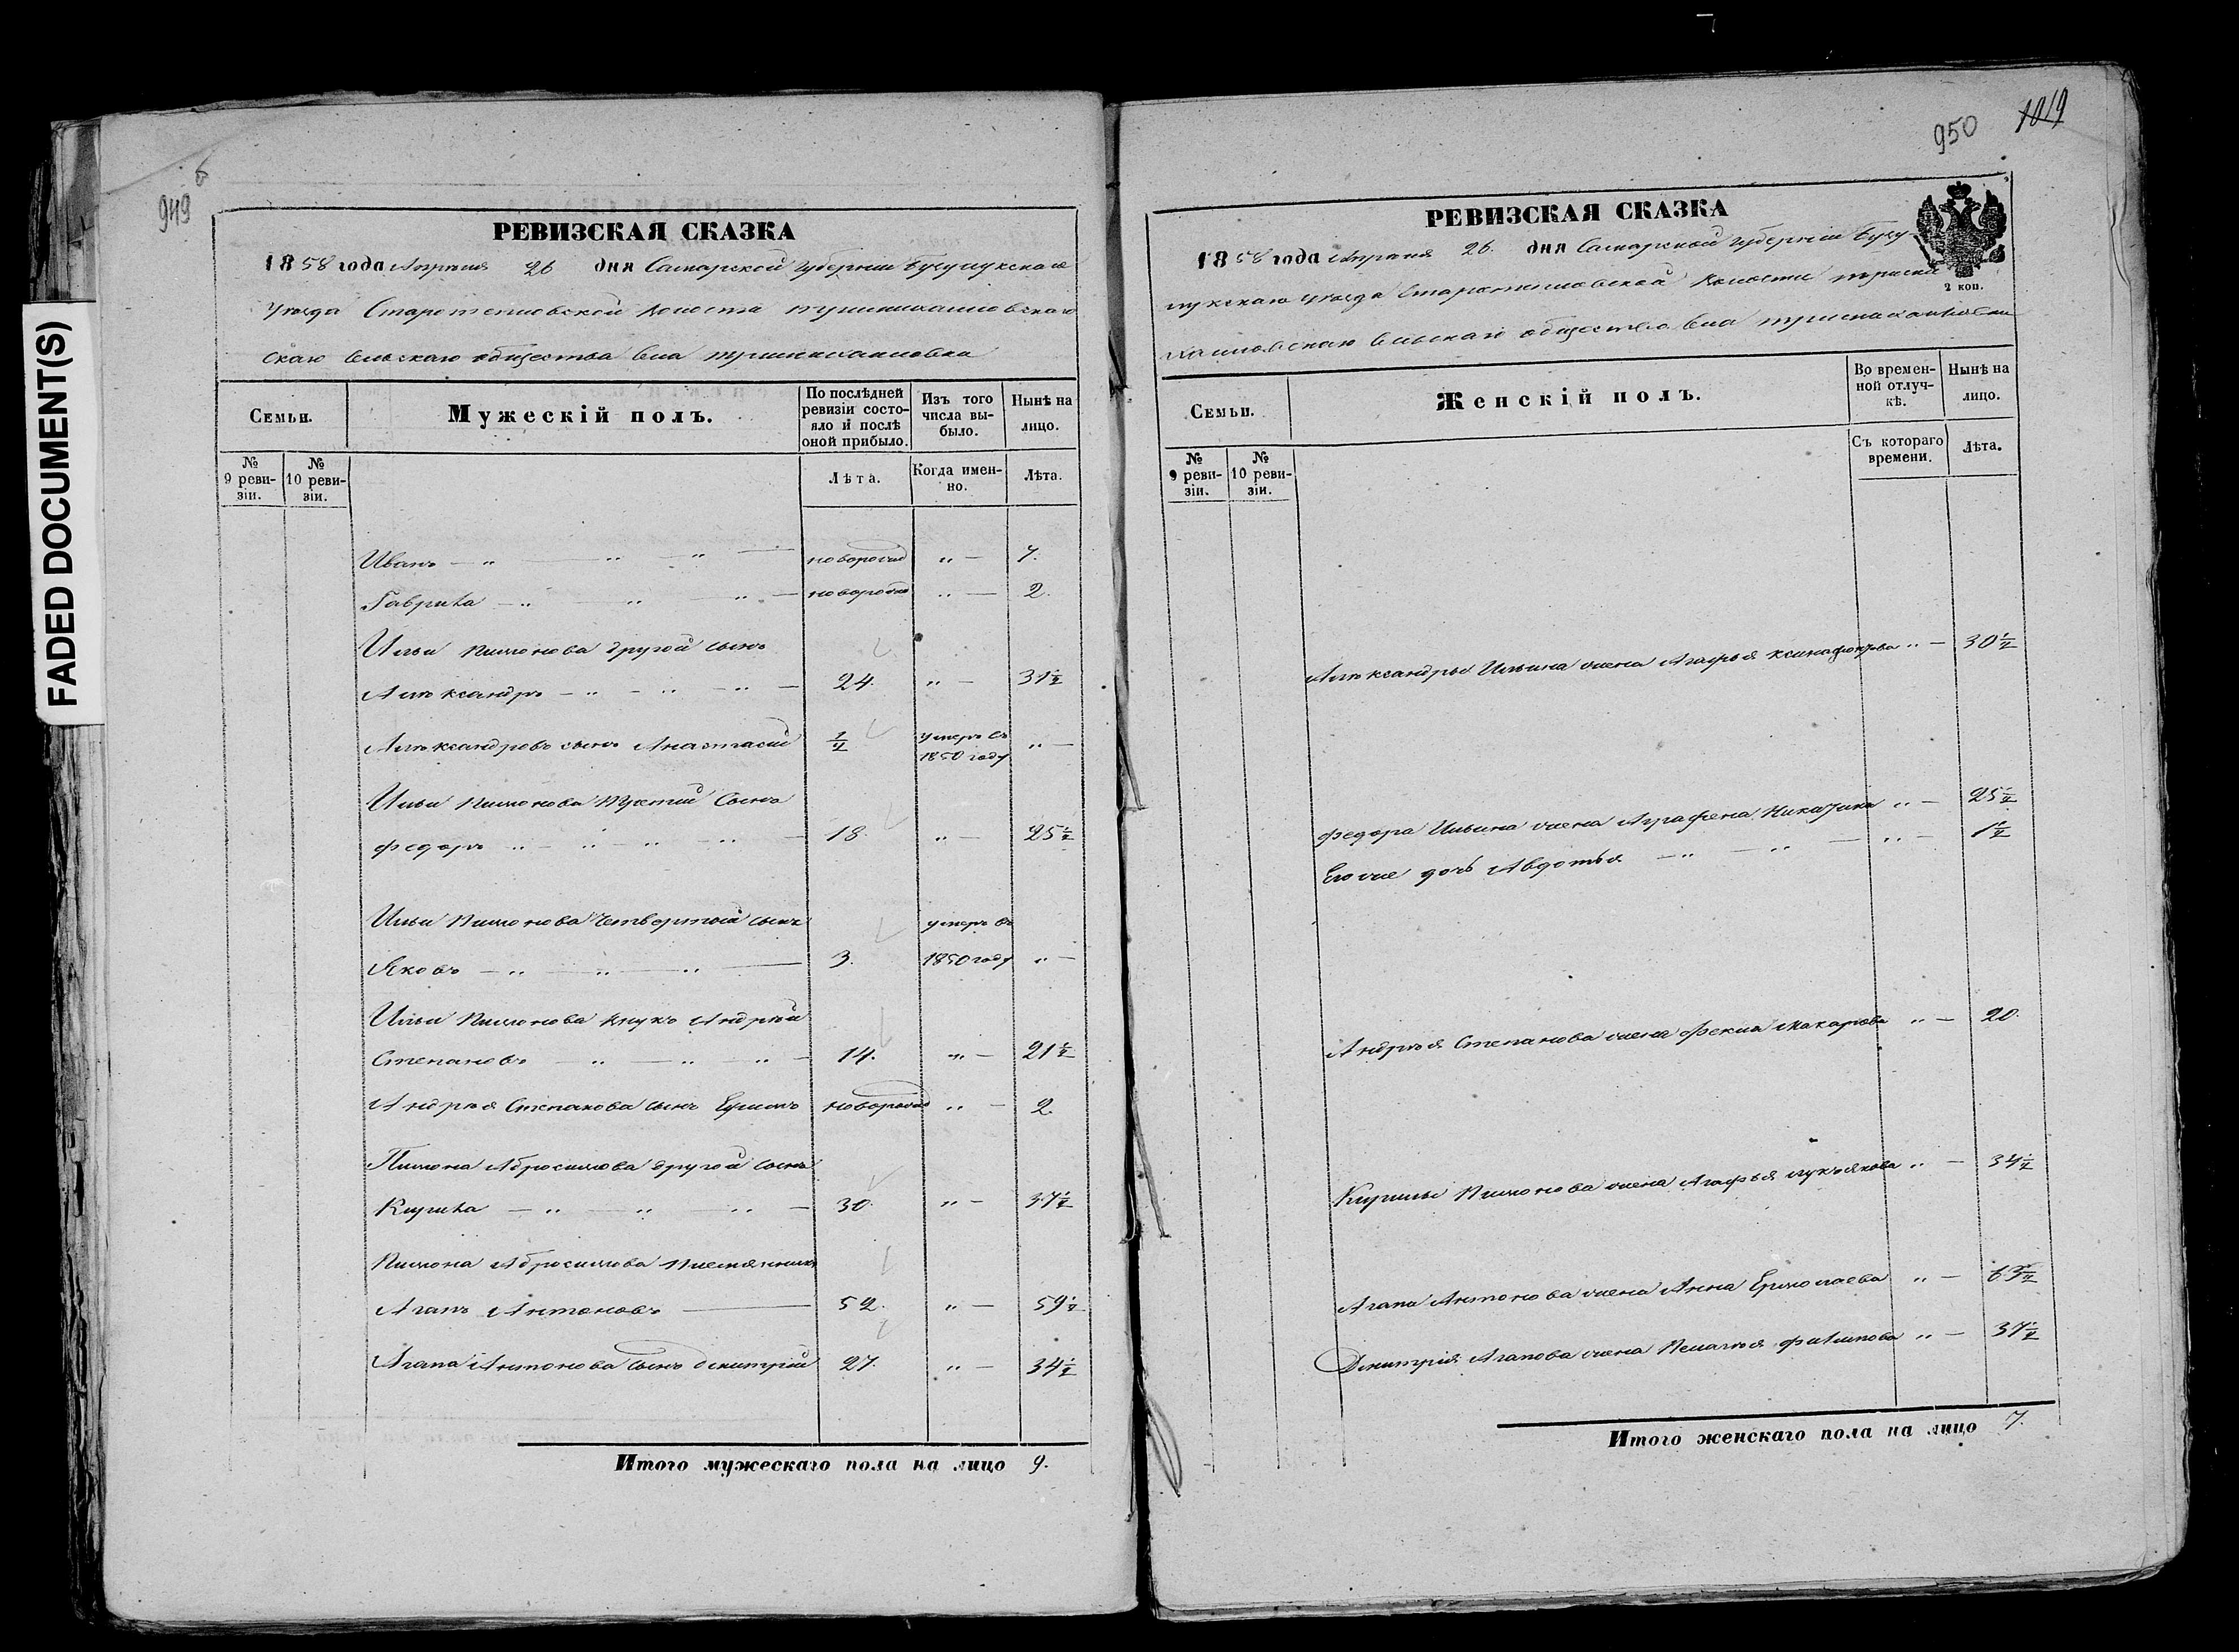 FADED DOCUMENT(S)
949
РЕВИЗСКАЯ СКАЗКА
1858 года Апреля 26 дня Самарской губернiи Бугурукскаго
уѣзда Старотепловской волости
скаго сельскаго общества села
Семьи.
Мужескiй полъ.
По послѣдней ревизiи состояло и послѣ оной прибыло.
Изъ того числа выбыло.
Нынѣ на лицо.
№ 9 ревизiи.
№ 10 ревизiи.
Лѣта.
Когда именно.
Лѣта.
Иванъ — „ — „ — „ — новорожд „ — 7.
Гаврила — „ — „ — „ — новорожд „ — 2.
Ильи Пимонова другой сынъ
Александръ — „ — „ — „ — 24. „ — 31½
Александровъ сынъ Анастасiй ½ умеръ въ 1850 году „ —
Ильи Пимонова третiй сынъ
Федоръ „ — „ — „ — „ — 18. „ — 25½
Ильи Пимонова четвертый сынъ умеръ въ
Яковъ — „ — „ — „ — 3. 1850 году „ —
Ильи Пимонова внукъ Андрей
Степановъ — „ — „ — „ — 14. „ — 21½
Андрея Степанова сынъ новорожд „ — 2.
Пимона Абросимова другой сынъ
Кирила — „ — „ — „ — 30. „ — 37½
Пимона Абросимова племянникъ
Агапъ Антоновъ — 52. „ — 59½
Агапа Антонова сынъ Дмитрiй 27. „ — 34½
Итого мужескаго пола на лицо 9.
950 1019
РЕВИЗСКАЯ СКАЗКА
2 коп.
1858 года Апреля 26. дня Самарской губернiи Бугу-
уѣзда Старотепловской волости
сельскаго общества села
Семьи.
Женскiй полъ.
Во временной отлучкѣ.
Нынѣ на лицо.
№ 9 ревизiи.
№ 10 ревизiи.
Съ котораго времени.
Лѣта.
Александры Ильина жена Агафья Ксинафонтова „ — 30½
Федора Ильина жена Аграфена „ — 25½
Егоже дочь Авдотья — „ — „ — „ — 1½
Андрея Степанова жена Фекла Макарова „ — 20.
Кирилы Пимонова жена Агафья Лукьянова „ — 34½
Агапа Антонова жена Анна Ермолаева „ —
Дмитрiя Агапова жена Пелагья Филипова „ — 37½
Итого женскаго пола на лицо 7.